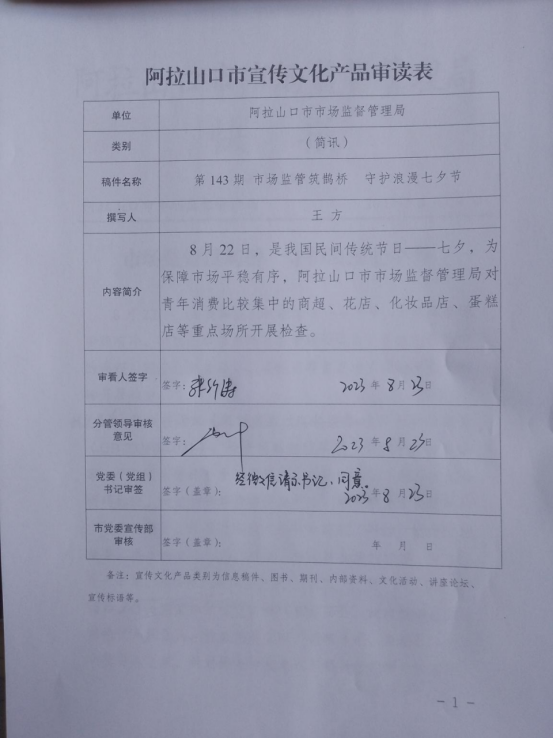 阿拉山口市宣传文化产品审读表
单位 阿拉山口市市场监督管理局
类别 （简讯）
稿件名称 第 143 期 市场监管筑鹊桥 守护浪漫七夕节
撰写人 王 方
8 月 22 日，是我国民间传统节日——七夕，为
保障市场平稳有序，阿拉山口市市场监督管理局对
内容简介
青年消费比较集中的商超、花店、化妆品店、蛋糕
店等重点场所开展检查。
审看人签字 签字： 2023 年 8 月 23 日
分管领导审核
意见
签字： 2023 年 8 月 23 日
党委（党组）
书记审签
经微信请示书记，同意。
签字（盖章）： 2023 年 8 月 23 日
市党委宣传部
审核
签字（盖章）： 年 月 日
备注：宣传文化产品类别为信息稿件、图书、期刊、内部资料、文化活动、讲座论坛、
宣传标语等。
- 1 -